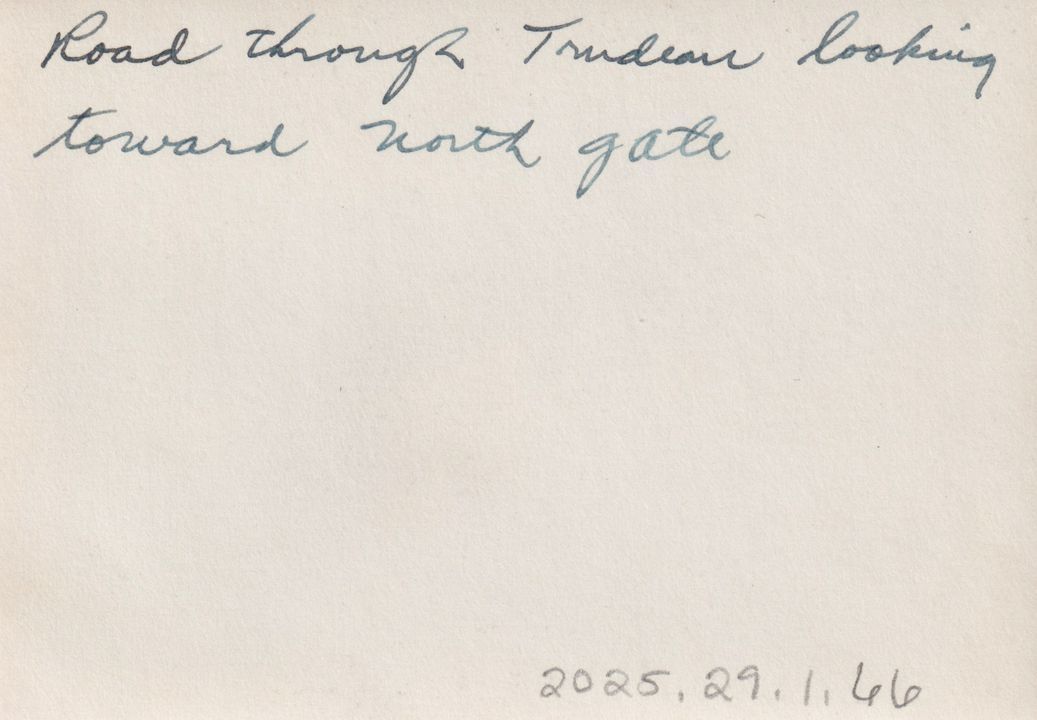 Road through Trudeau looking
toward north gate
2025.29.1.66